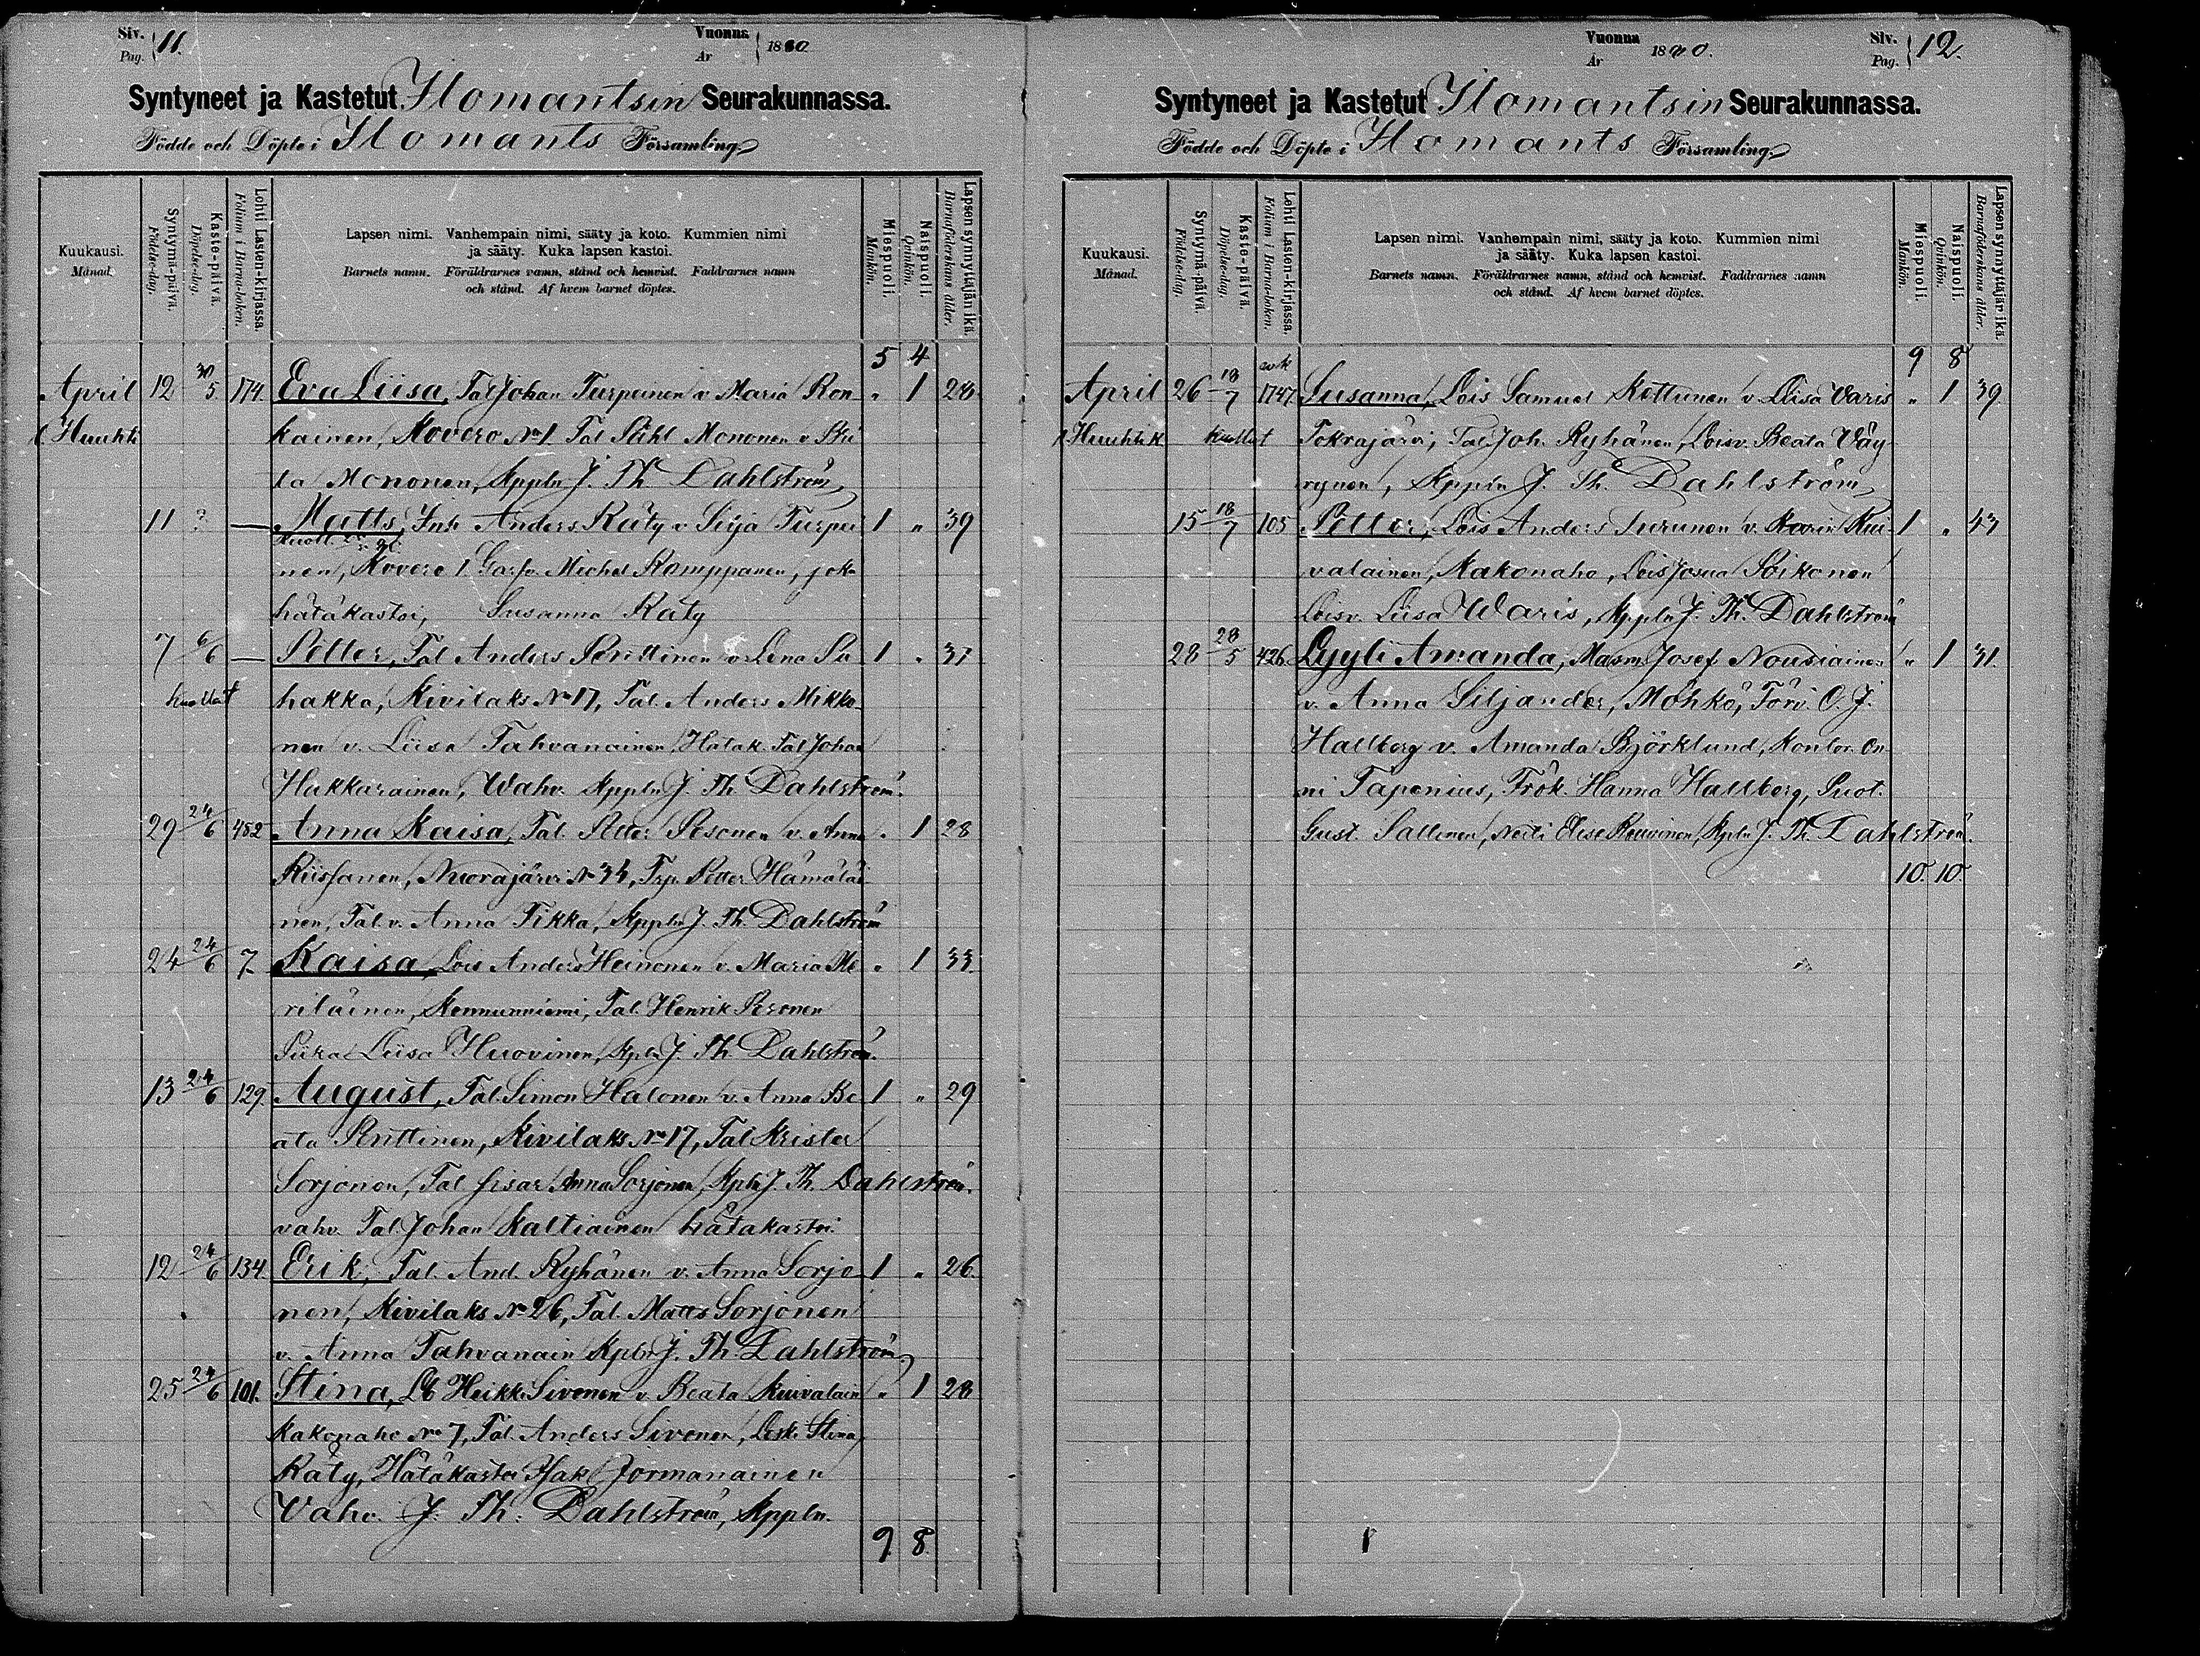 Siv. Pag. 11.
Vuonna År 1880.
Syntyneet ja Kastetut Ilomantsin Seurakunnassa.
Födde och Döpte i Ilomants Församling
Kuukausi. Månad.
Syntymä-päivä. Födelse-dag.
Kaste-päivä. Döpelse-dag.
Lehti Lasten-kirjassa. Folium i Barna-boken.
Lapsen nimi. Vanhempain nimi, sääty ja koto. Kummien nimi
ja sääty. Kuka lapsen kastoi.
Barnets namn. Föräldrarnes namn, stånd och hemvist. Faddrarnes namn
och stånd. Af hvem barnet döptes.
Miespuoli. Mankön.
Naispuoli. Qvinkön.
Lapsen synnyttäjän ikä. Barnaföderskans ålder.
5 4
April 12 30/5 174. Eva Liisa, Tal Johan Turpeinen v. Maria Ron- " 1 28
Huuhti kainen, Kovero No 1. Tal Påhl Mononen v. Bri
ta Mononen, Kappln J. Th. Dahlström
11 ? — Matts, Inh Anders Räty v Silja Turpei 1 " 39
nen, Kovero 1 Michel Romppanen, joka
hätäkastoi, Susanna Räty
7 6/6 — Petter, Tal Anders Penttinen v. Lena Pu 1 " 37
kuollut hakka, Kivilaks No 17, Tal. Anders Mikko-
nen v. Liisa Tahvanainen, Hätäk. Tal Johan
Hakkarainen, Wahv. Kappln J. Th. Dahlström.
29 24/6 452 Anna Kaisa, Tal. Petter Pesonen v. Anna " 1 28
Riissanen, Nuorajärvi No 34, Petter Hämäläi
nen, Tal. v. Anna Tikka, Kappln J. Th. Dahlström
24 24/6 7. Kaisa, Lois Anders Heinonen v. Maria Me " 1 33.
riläinen, Kemmunniemi, Tal. Henrik Pesonen
Piika Liisa Huovinen, Kpln J. Th. Dahlström.
13 24/6 129. August, Tal Simon Halonen v. Anna Be 1 " 29
ata Penttinen, Kivilaks No 17, Tal Krister
Sorjonen, Tal sisar Anna Sorjonen, Kpln J. Th. Dahlström.
vahv. Tal. Johan Kaltiainen hätäkastoi.
12 24/6 134. Erik, Tal. And. Ryhänen v. Anna Sorjo 1 " 26.
nen, Kivilaks No 26, Tal. Matts Sorjonen
v. Anna Tahvanain Kpln J. Th. Dahlström,
25 24/6 101. Stina, Heikki Sivonen v. Beata Kuivalain " 1 28
Kakonaho No 7, Tal. Anders Sivonen, Leski Stina
Räty, Hätäkastoi Isak Jormanainen
Vahv. J. Th. Dahlström, Kappln.
9 8.
Vuonna År 1880.
Siv. Pag. 12.
Syntyneet ja Kastetut Ilomantsin Seurakunnassa.
Födde och Döpte i Ilomants Församling
Kuukausi. Månad.
Syntymä-päivä. Födelse-dag.
Kaste-päivä. Döpelse-dag.
Lehti Lasten-kirjassa. Folium i Barna-boken.
Lapsen nimi. Vanhempain nimi, sääty ja koto. Kummien nimi
ja sääty. Kuka lapsen kastoi.
Barnets namn. Föräldrarnes namn, stånd och hemvist. Faddrarnes namn
och stånd. Af hvem barnet döptes.
Miespuoli. Mankön.
Naispuoli. Qvinkön.
Lapsen synnyttäjän ikä. Barnaföderskans ålder.
9 8
April 26 18/7 1747. Susanna, Lois Samuel Kettunen v. Liisa Varis " 1 39
Huuhtik kuollut Tokrajärvi, Tal. Joh. Ryhänen, Loisv. Beata Väy
rynen, Kappln J. Th. Dahlström
15 18/7 105 Petter, Lois Anders Turunen v. Karin Kui- 1 " 43
valainen, Kakonaho, Lois Josua Soikonen
Loisv. Liisa Waris, Kappln J. Th. Dahlström
28 28/5 426. Lyyli Amanda, Masm. Josef Nousiainen " 1 31.
v. Anna Siljander, Möhkö, Förv. O. J.
Hallberg v. Amanda Björklund, Kontor. On
ni Tapenius, Frök. Hanna Hallberg,
Gust. Sallinen, Neiti Elise Rouvinen, Kpln J. Th. Dahlström.
10. 10.